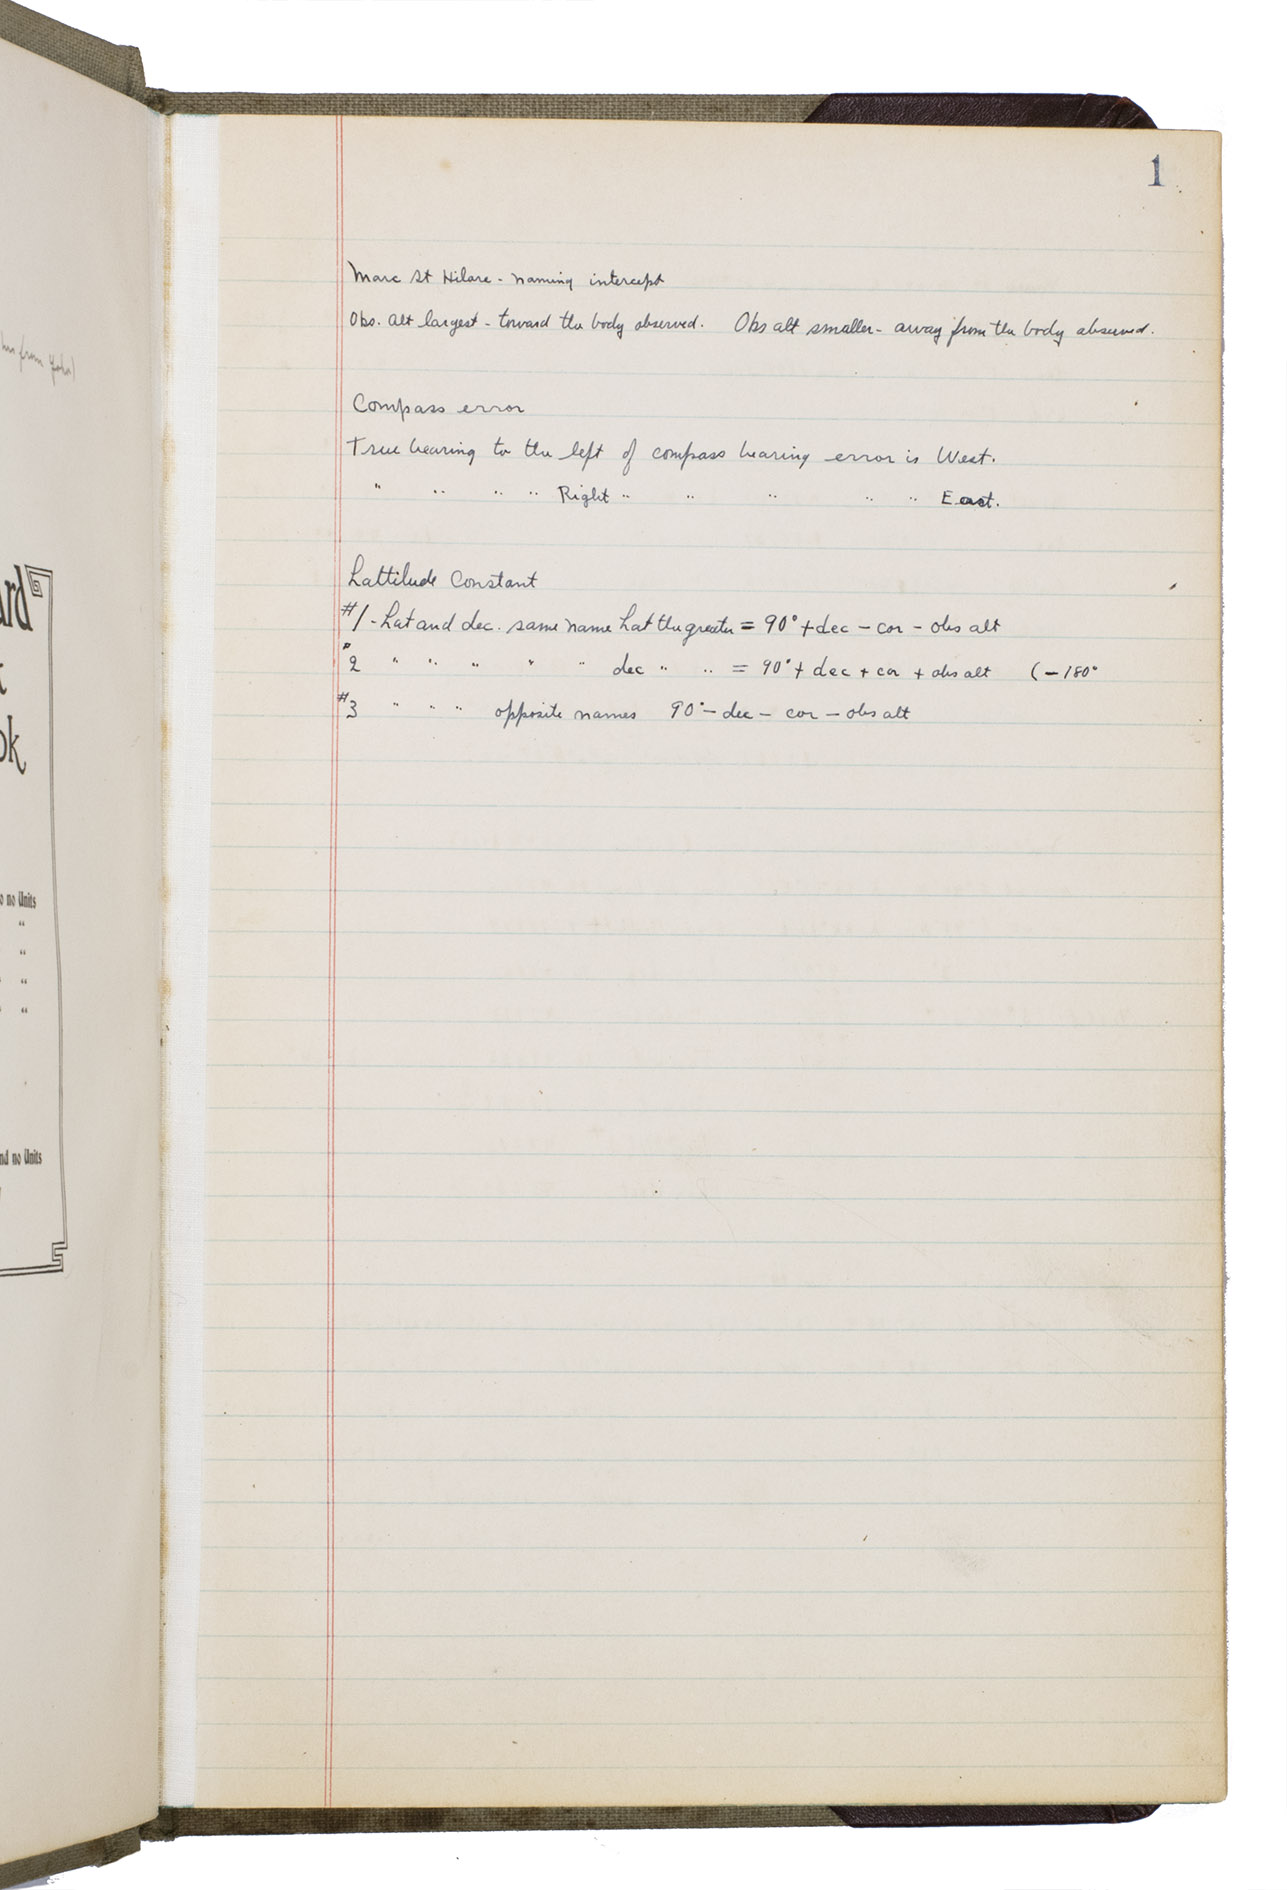 1
Marc St Hilare - naming intercept
Obs. alt largest - toward the body observed. Obs alt smaller - away from the body observed.
Compass error
True bearing to the left of compass bearing error is West.
" " " " Right " " " " " East.
Lattitude Constant
#1 - Lat and dec. same name Lat the greater = 90° + dec - cor - obs alt
#2 " " " " " dec " " = 90° + dec + cor + obs alt (-180°
#3 " " " opposite names 90° - dec - cor - obs alt
from John)
ard
ok
no Units
"
"
"
"
nd no Units